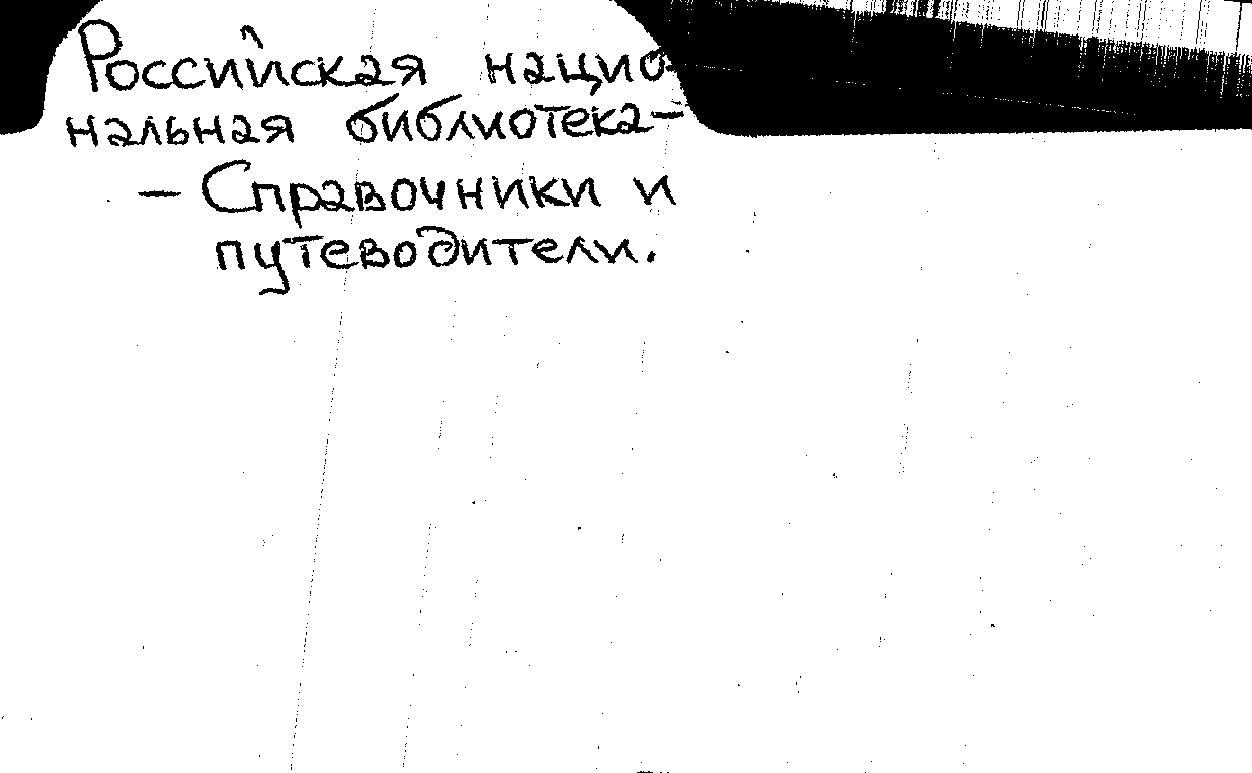 Российская нацио-
нальная библиотека-
- Справочники и
путеводители.